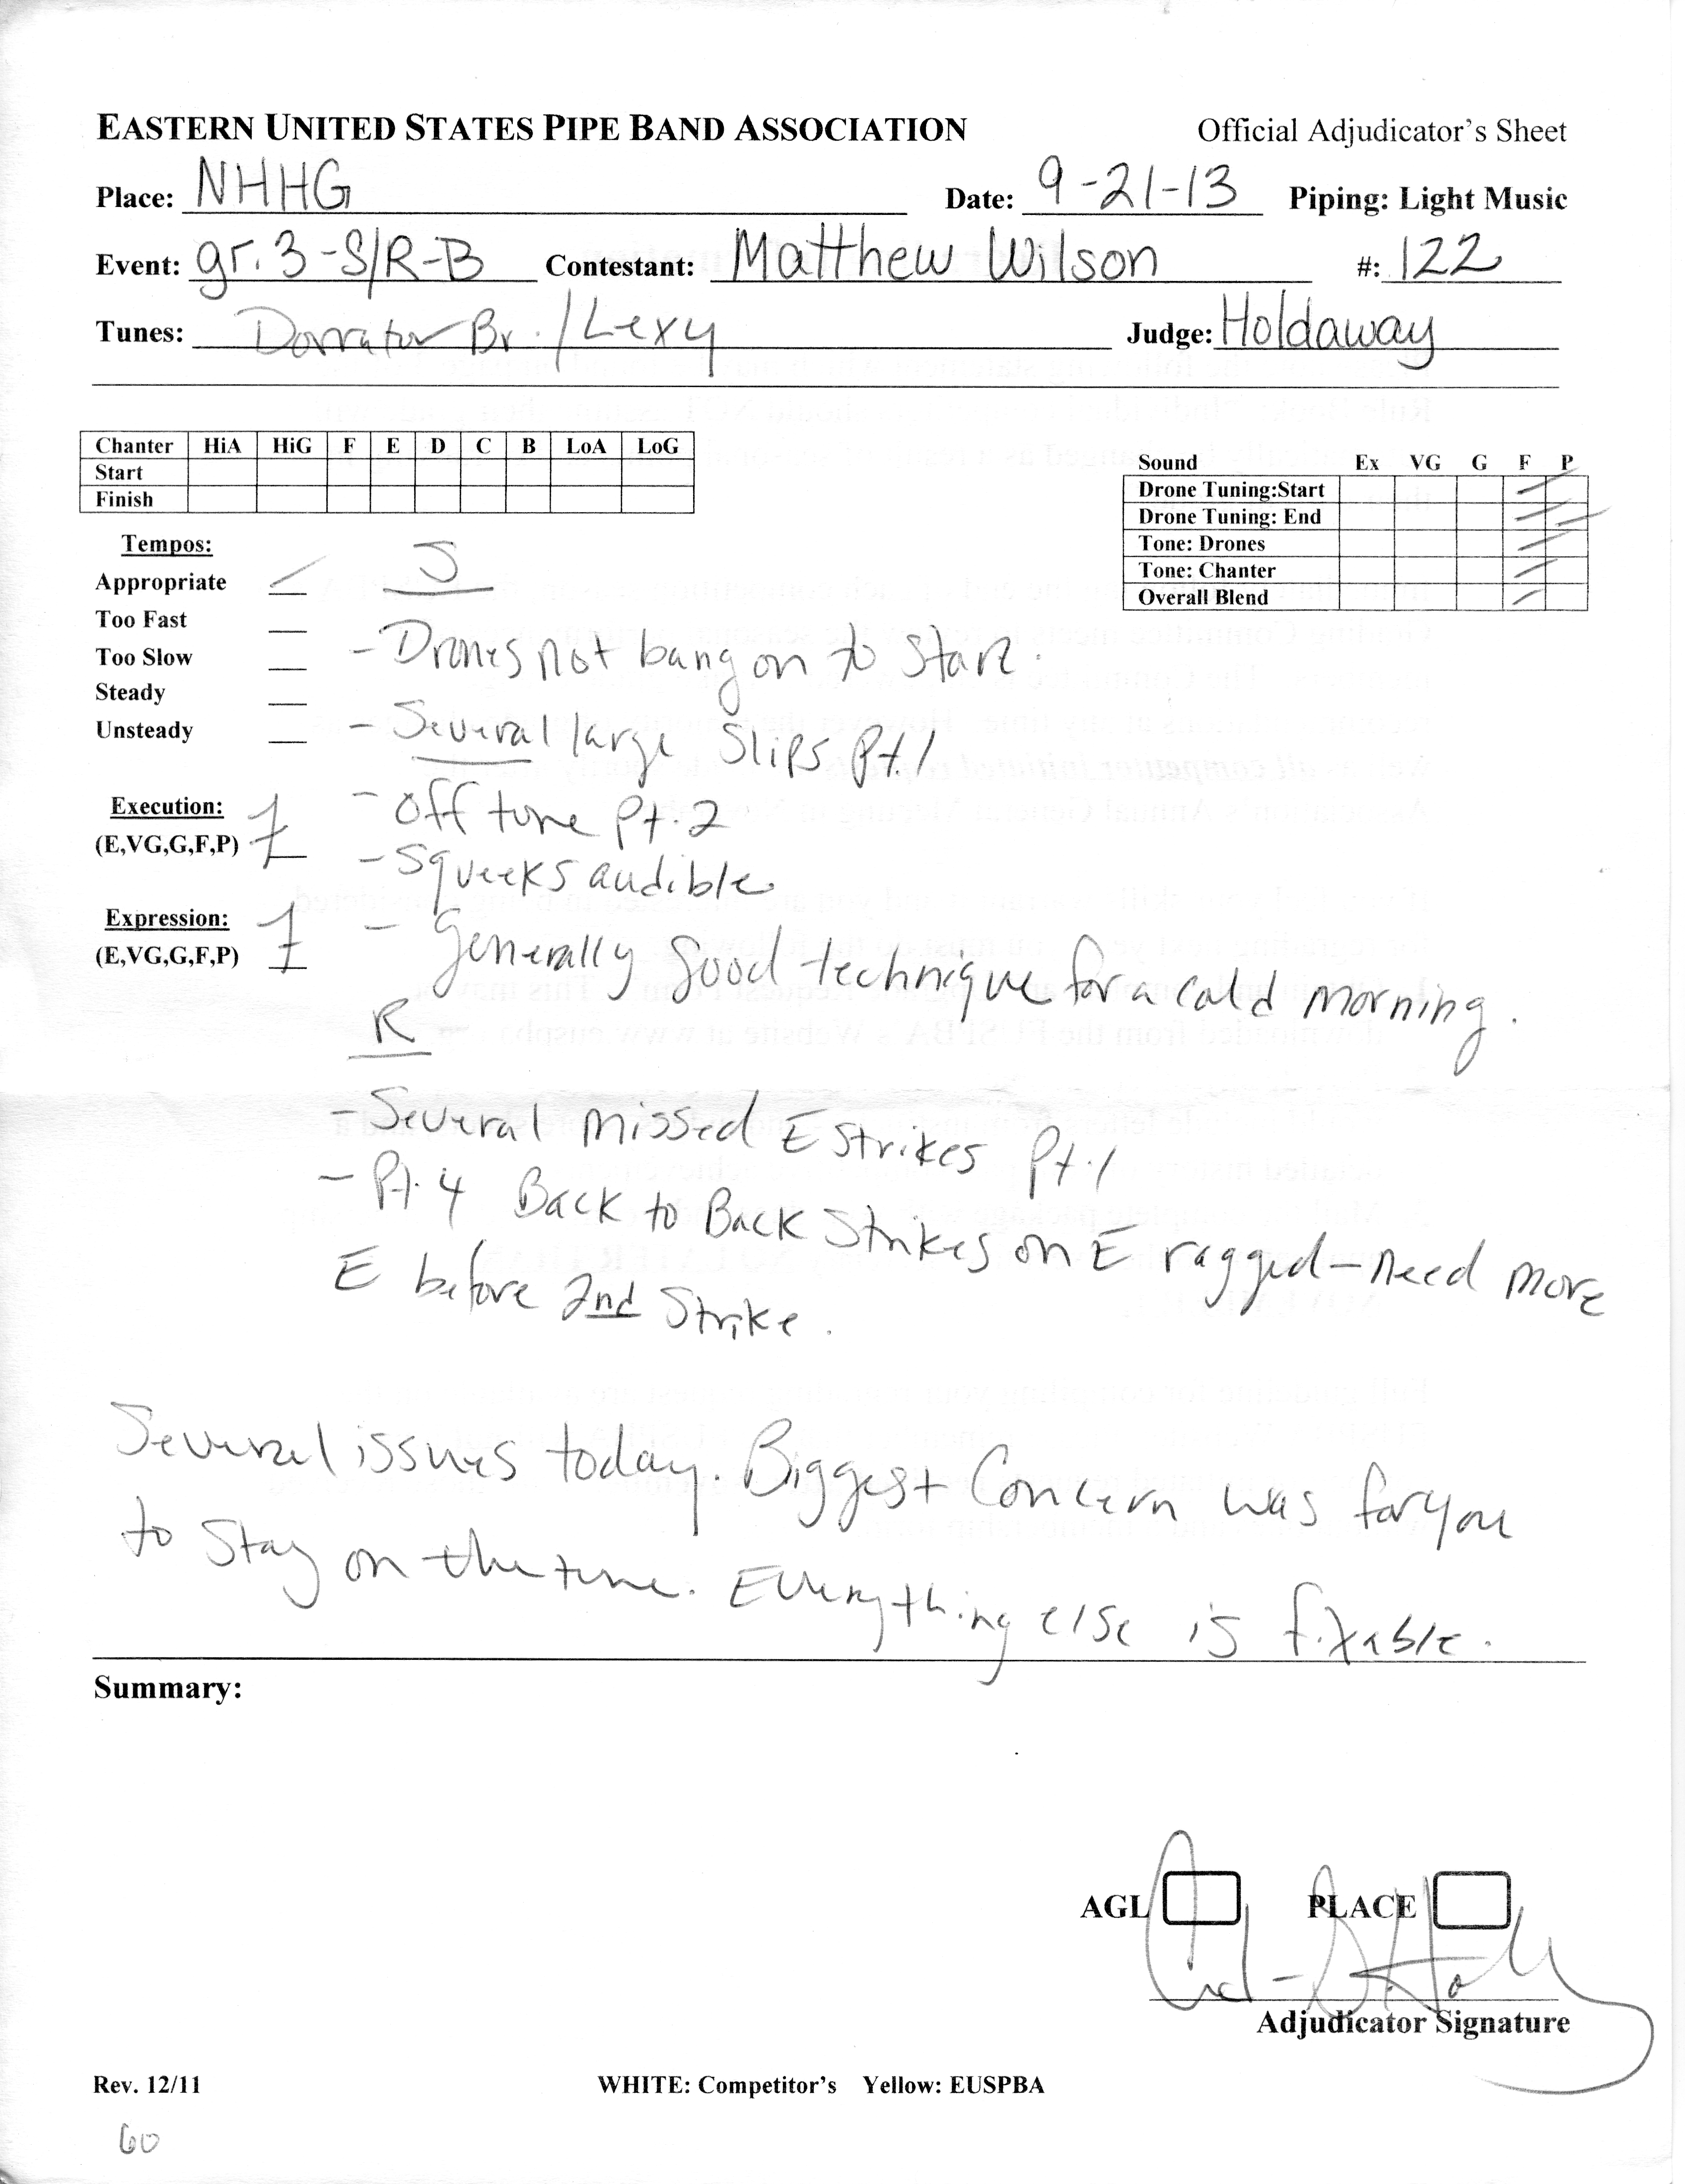 EASTERN UNITED STATES PIPE BAND ASSOCIATION Official Adjudicator's Sheet
Place: NHHG Date: 9-21-13 Piping: Light Music
Event: gr. 3 -S/R-B Contestant: Matthew Wilson #: 122
Tunes: Dorrator Br. / Lexy Judge: Holdaway
Chanter HiA HiG F E D C B LoA LoG
Start
Finish
Sound Ex VG G F P
Drone Tuning:Start
Drone Tuning: End
Tone: Drones
Tone: Chanter
Overall Blend
Tempos: S
Appropriate
Too Fast
Too Slow
Steady
Unsteady
- Drones not bang on to start.
- Several large slips pt. 1
- Off tune pt. 2
- Squeeks audible.
- Generally good technique for a cold morning.
Execution:
(E,VG,G,F,P) F
Expression:
(E,VG,G,F,P) F
R
- Several missed E strikes pt. 1
- Pt. 4 Back to Back Strikes on E ragged - need more
E before 2nd Strike.
Several issues today. Biggest Concern was for you
to stay on the tune. Everything else is fixable.
Summary:
AGL PLACE
Adjudicator Signature
Rev. 12/11 WHITE: Competitor's Yellow: EUSPBA
60